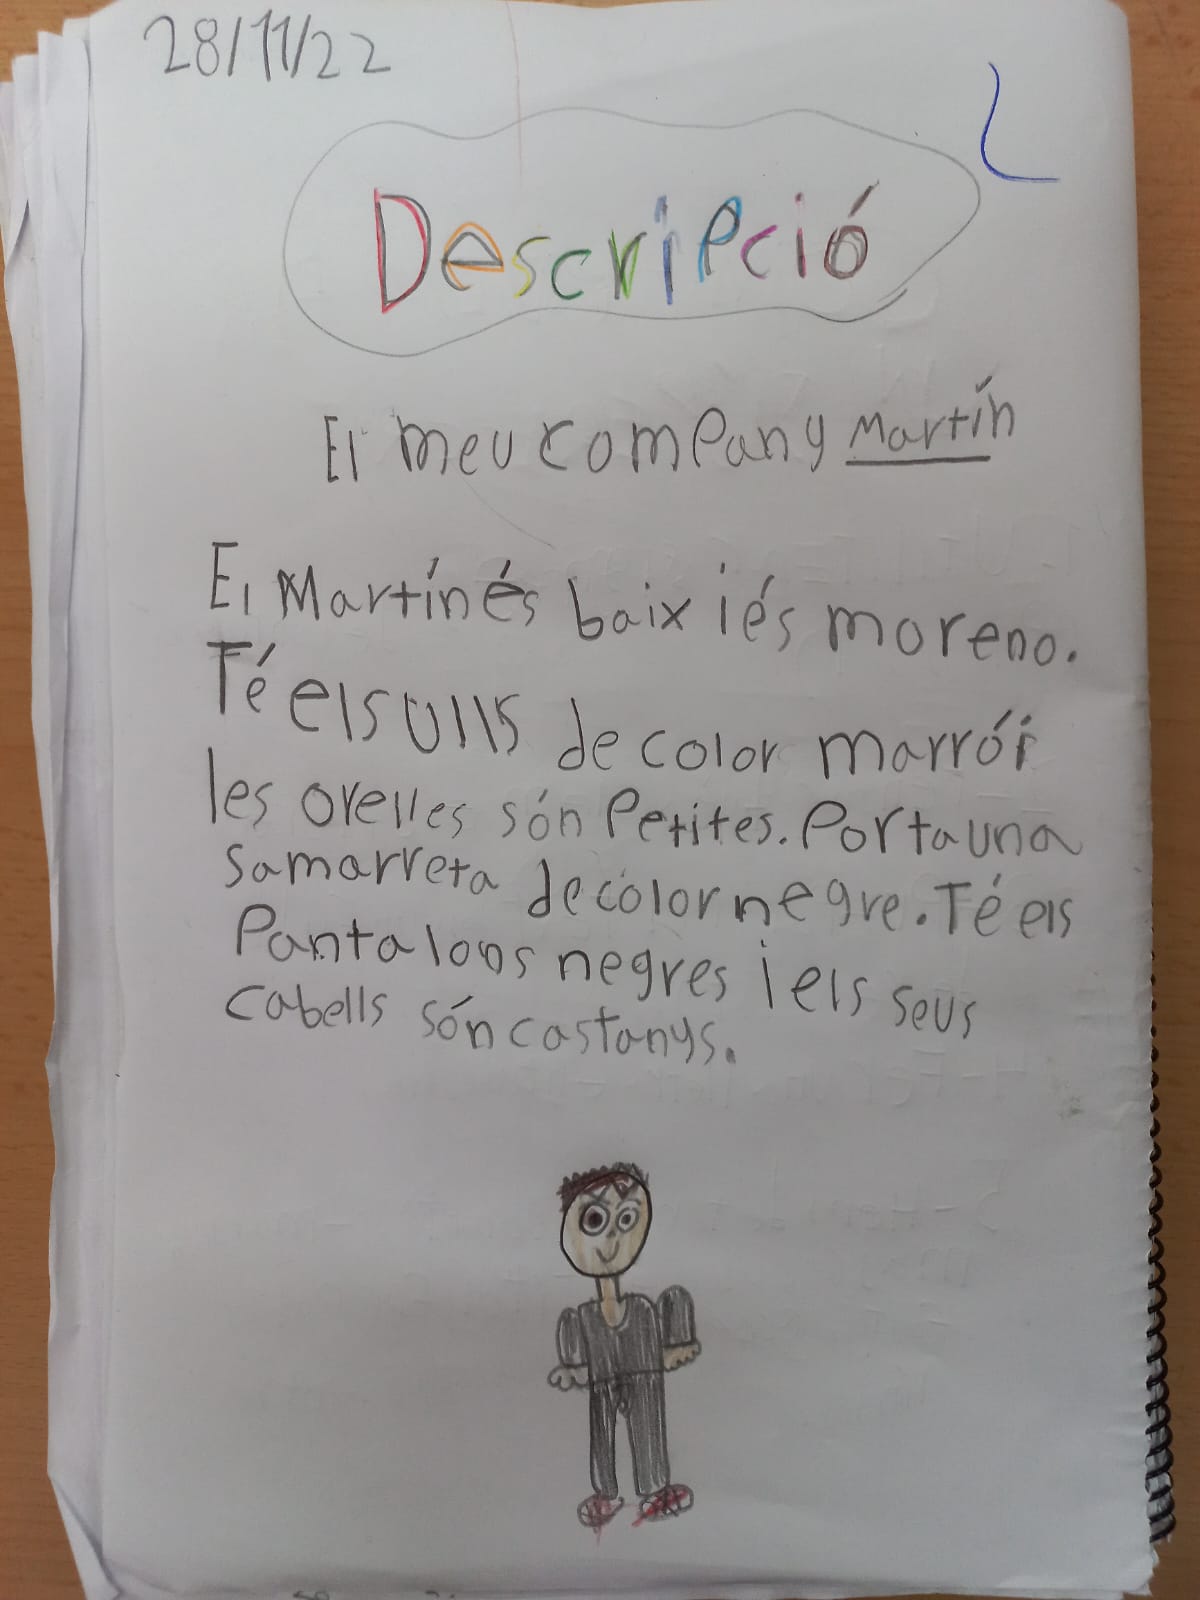 28/11/22
Descripció
El meu company Martín
El Martín és baix i és moreno.
Té els ulls de color marró i
les orelles són petites. Porta una
samarreta de color negre. Té els
pantalons negres i els seus
cabells són castanys.